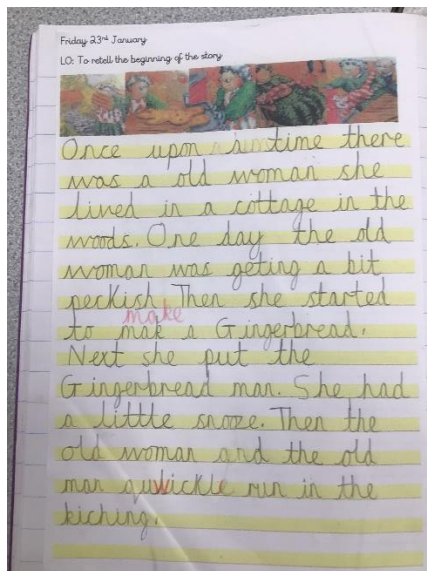 Friday 23rd January
LO: To retell the beginning of the story
Once upon a time there
was a old woman she
lived in a cottage in the
woods. One day the old
woman was geting a bit
peckish Then she started
make
to mak a Gingerbread.
Next she put the
Gingerbread man. She had
a little snooze. Then the
old woman and the old
man quwickle run in the
kiching.